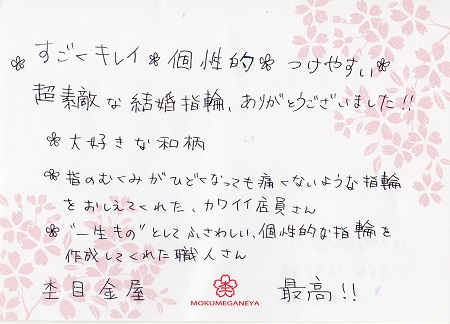 ❀すごくキレイ❀個性的❀つけやすい❀
超素敵な結婚指輪、ありがとうございました!!
❀大好きな和柄
❀指のむくみがひどくなっても痛くないような指輪
をおしえてくれた、カワイイ店員さん
❀"一生もの"としてふさわしい、個性的な指輪を
作成してくれた職人さん
杢目金屋 最高!!
杢
MOKUMEGANEYA